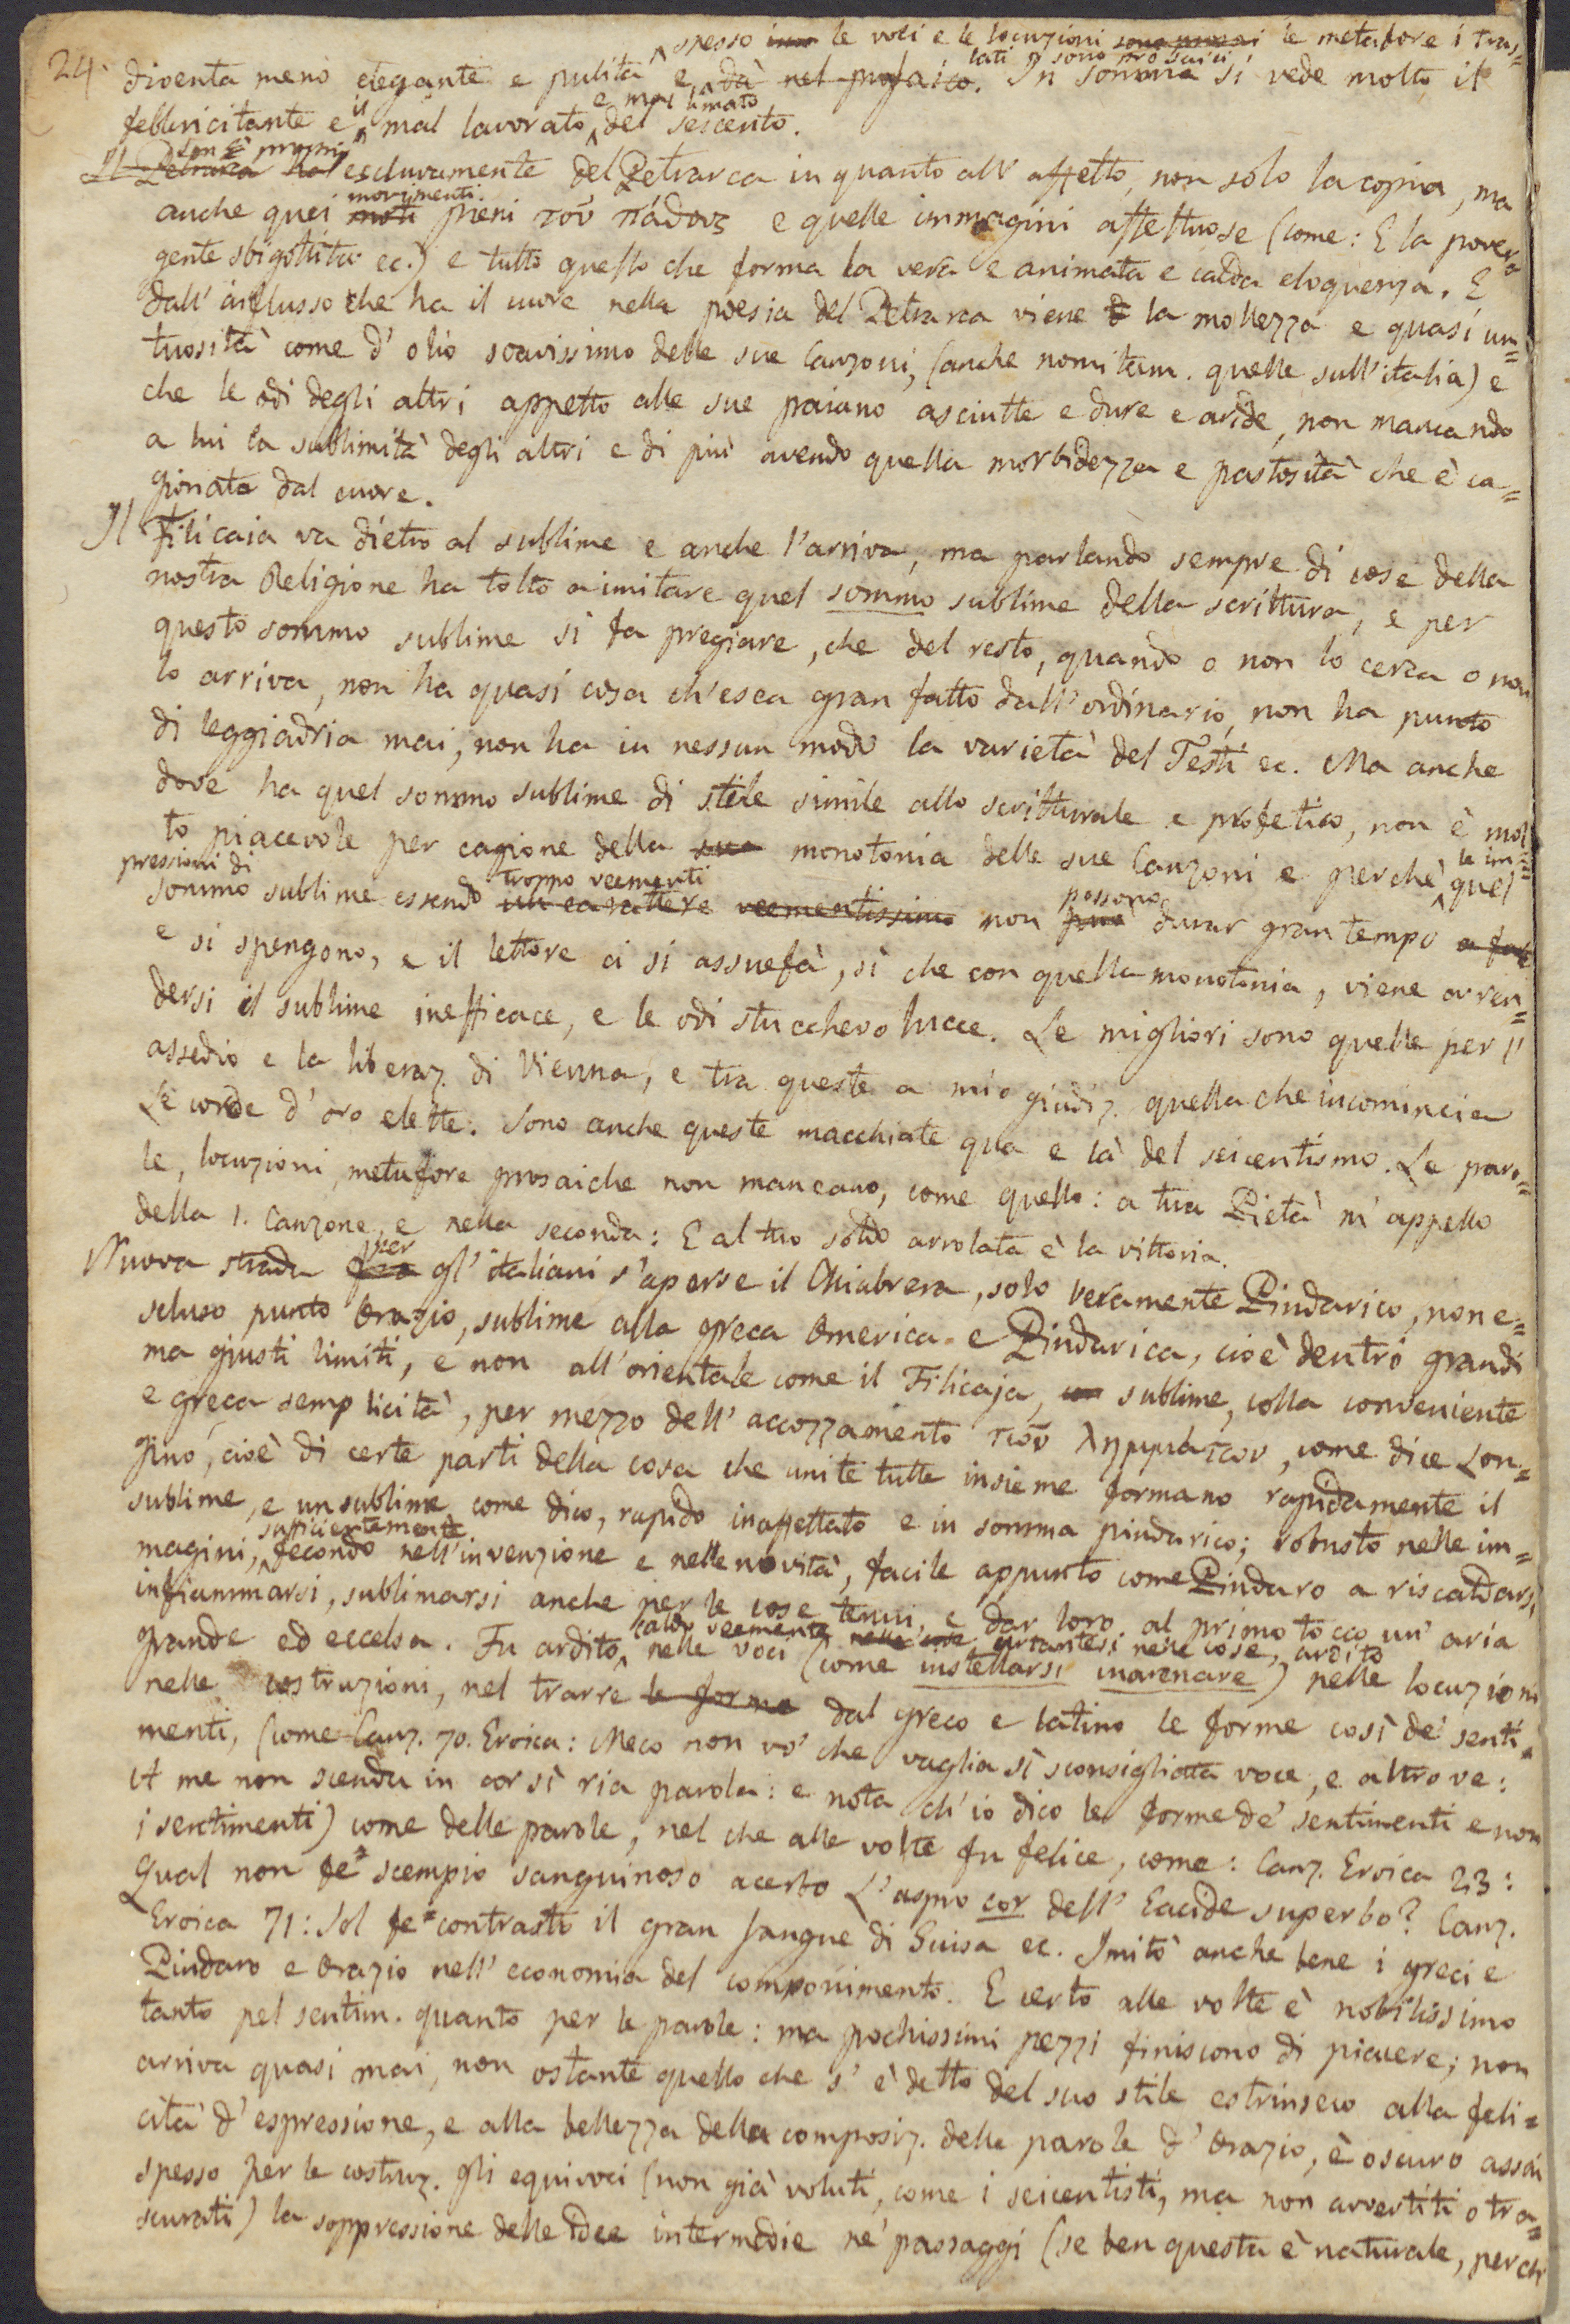 24.
spesso le voci e le locuzioni le metafore i tras=
lati sono prosaici
diventa meno elegante e pulita e dà nel prosaico. In somma si vede molto il
e mal limato
febbricitante e il mal lavorato del seicento.
Son proprj
Il Petrarca ha esclusivamente del Petrarca in quanto all' affetto, non solo la copia, ma
movimenti
anche quei moti pieni τοῦ πάθους e quelle immagini affettuose (come: E la povera
gente sbigottita ec.) e tutto quello che forma la vera e animata e calda eloquenza. E
dall' influsso che ha il cuore nella poesia del Petrarca viene la mollezza e quasi un=
tuosità come d' olio soavissimo delle sue Canzoni, (anche nomitam. quelle sull'italia) e
che le odi degli altri appetto alle sue paiano asciutte e dure e aride, non mancando
a lui la sublimità degli altri e di più avendo quella morbidezza e pastosità che è ca=
gionata dal cuore.
Il Filicaia va dietro al sublime e anche l'arriva, ma parlando sempre di cose della
nostra Religione ha tolto a imitare quel sommo sublime della scrittura, e per
questo sommo sublime si fa pregiare, che del resto, quando o non lo cerca o non
lo arriva, non ha quasi cosa ch'esca gran fatto dall'ordinario, non ha punto
di leggiadria mai, non ha in nessun modo la varietà del Testi ec. Ma anche
dove ha quel sommo sublime di stile simile allo scritturale e profetico, non è mol=
to piacevole per cagione della sua monotonia delle sue Canzoni e perchè le im= quel
pressioni di
troppo veementi
possono
sommo sublime essendo un carattere veementissimo non può durar gran tempo
e si spengono, e il lettore ci si assuefà, sì che con quella monotonia, viene a ren=
dersi il sublime inefficace, e le odi stucchevolucce. Le migliori sono quelle per l'
assedio e la liberaz. di Vienna, e tra queste a mio giudiz. quella che incomincia
Le corde d' oro elette. Sono anche queste macchiate qua e là del seicentismo. Le paro=
le, locuzioni, metafore prosaiche non mancano, come quello: a tua Pietà m' appello
della 1. Canzone, e nella seconda: E al tuo soldo arrolata è la vittoria.
per
Nuova strada fra gl' italiani s'aperse il Chiabrera, solo veramente Pindarico, non e=
scluso punto Orazio, sublime alla greca Omerica e Pindarica, cioè dentro grandi
ma giusti limiti, e non all'orientale come il Filicaja, sublime, colla conveniente
e greca semplicità, per mezzo dell' accozzamento τῶν λημμάτων, come dice Lon=
gino, cioè di certe parti della cosa che unite tutte insieme formano rapidamente il
sublime, e un sublime come dico, rapido inaffettato e in somma pindarico; robusto nelle im=
sufficientemente
magini, fecondo nell'invenzione e nelle novità, facile appunto come Pindaro a riscaldarsi,
infiammarsi, sublimarsi anche per le cose tenui, e dar loro al primo tocco un' aria
caldo veemente urtantesi nelle cose, ardito
grande ed eccelsa. Fu ardito nelle voci (come instellarsi inarenare) nelle locuzioni
nelle costruzioni, nel trarre le forme dal greco e latino le forme così de' senti=
menti, (come Canz. 70. Eroica: Meco non vo' che vaglia sì sconsigliata voce, e altrove:
A me non scenda in cor sì ria parola: e nota ch' io dico le forme de' sentimenti e non
i sentimenti) come delle parole, nel che alle volte fu felice, come: Canz. Eroica 23:
Qual non fe' scempio sanguinoso acerbo L' aspro cor dell' Eacide superbo? Canz.
Eroica 71: Sol fe' contrasto il gran sangue di Guisa ec. Imitò anche bene i greci e
Pindaro e Orazio nell' economia del componimento. E certo alle volte è nobilissimo
tanto pel sentim. quanto per le parole: ma pochissimi pezzi finiscono di piacere; non
arriva quasi mai, non ostante quello che s' è detto del suo stile estrinseco alla feli=
cità d' espressione, e alla bellezza della composiz. delle parole d' Orazio, è oscuro assai
spesso per le costruz. gli equivoci (non già voluti, come i seicentisti, ma non avvertiti o tra=
scurati) la soppressione delle idee intermedie ne' passaggi (se ben questa è naturale, perch